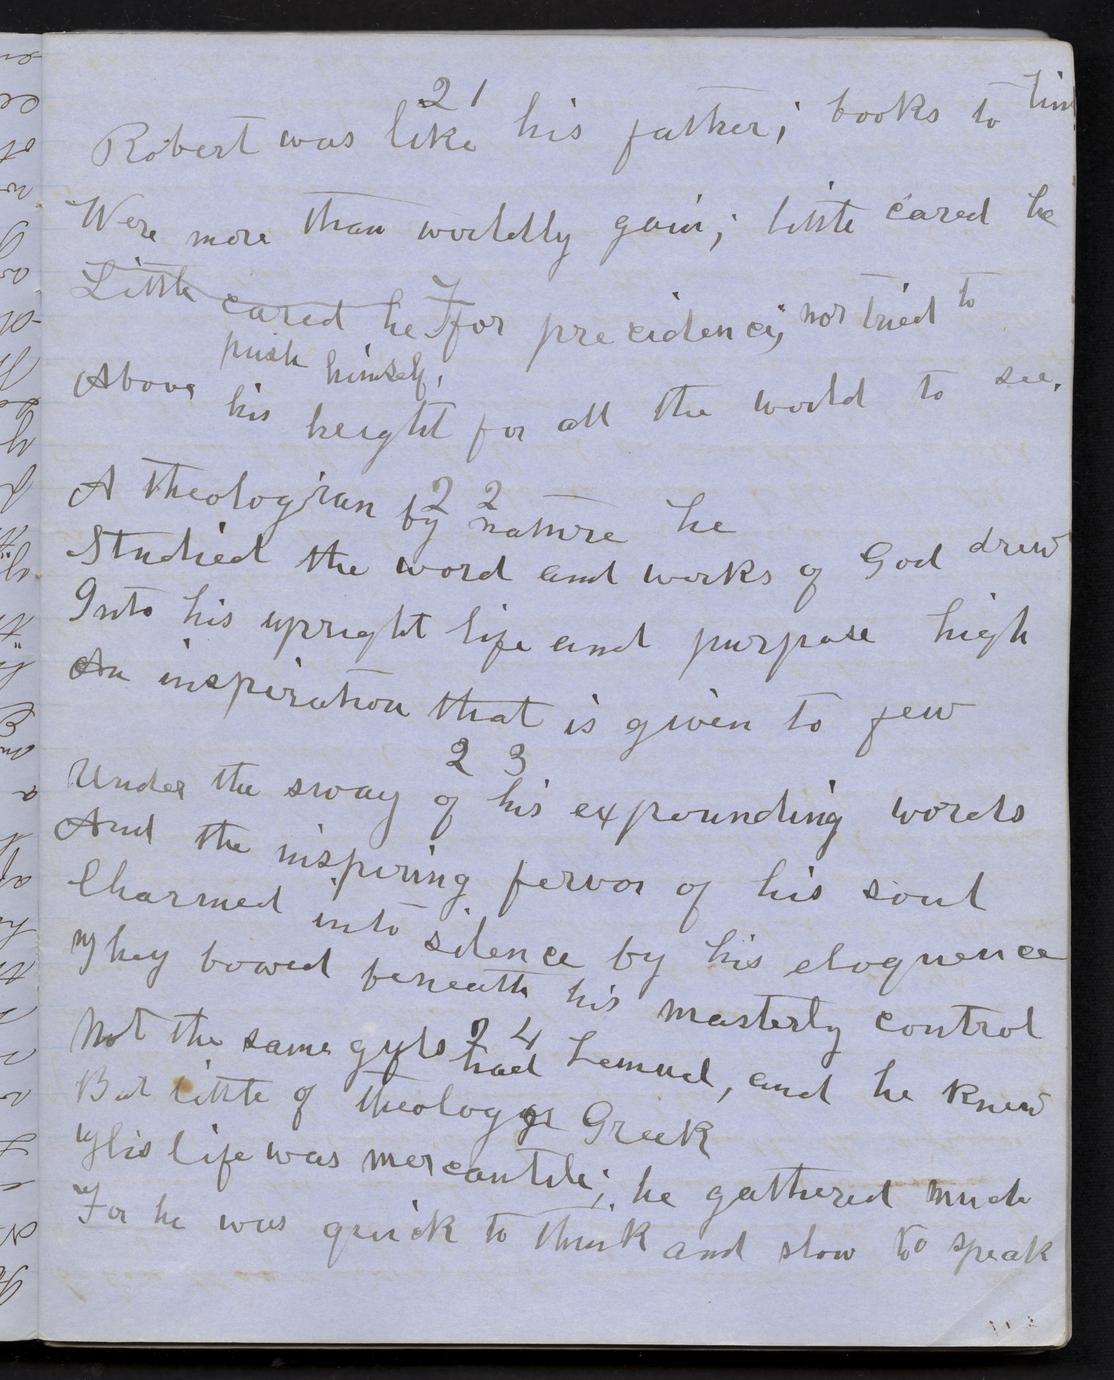 21
Robert was like his father; books to him
Were more than worldly gain; little cared he
Little cared he For precidency nor tried to
push himself,
Above his height for all the world to see.
22
A theologian by nature he
Studied the word and works of God drew
Into his upright life and purpose high
An inspiration that is given to few
23
Under the sway of his expounding words
And the inspiring fervor of his soul
Charmed into silence by his eloquence
They bowed beneath his masterly control
24
Not the same gifts had Lemuel, and he knew
But little of theology or Greek
His life was mercantile; he gathered much
For he was quick to think and slow to speak